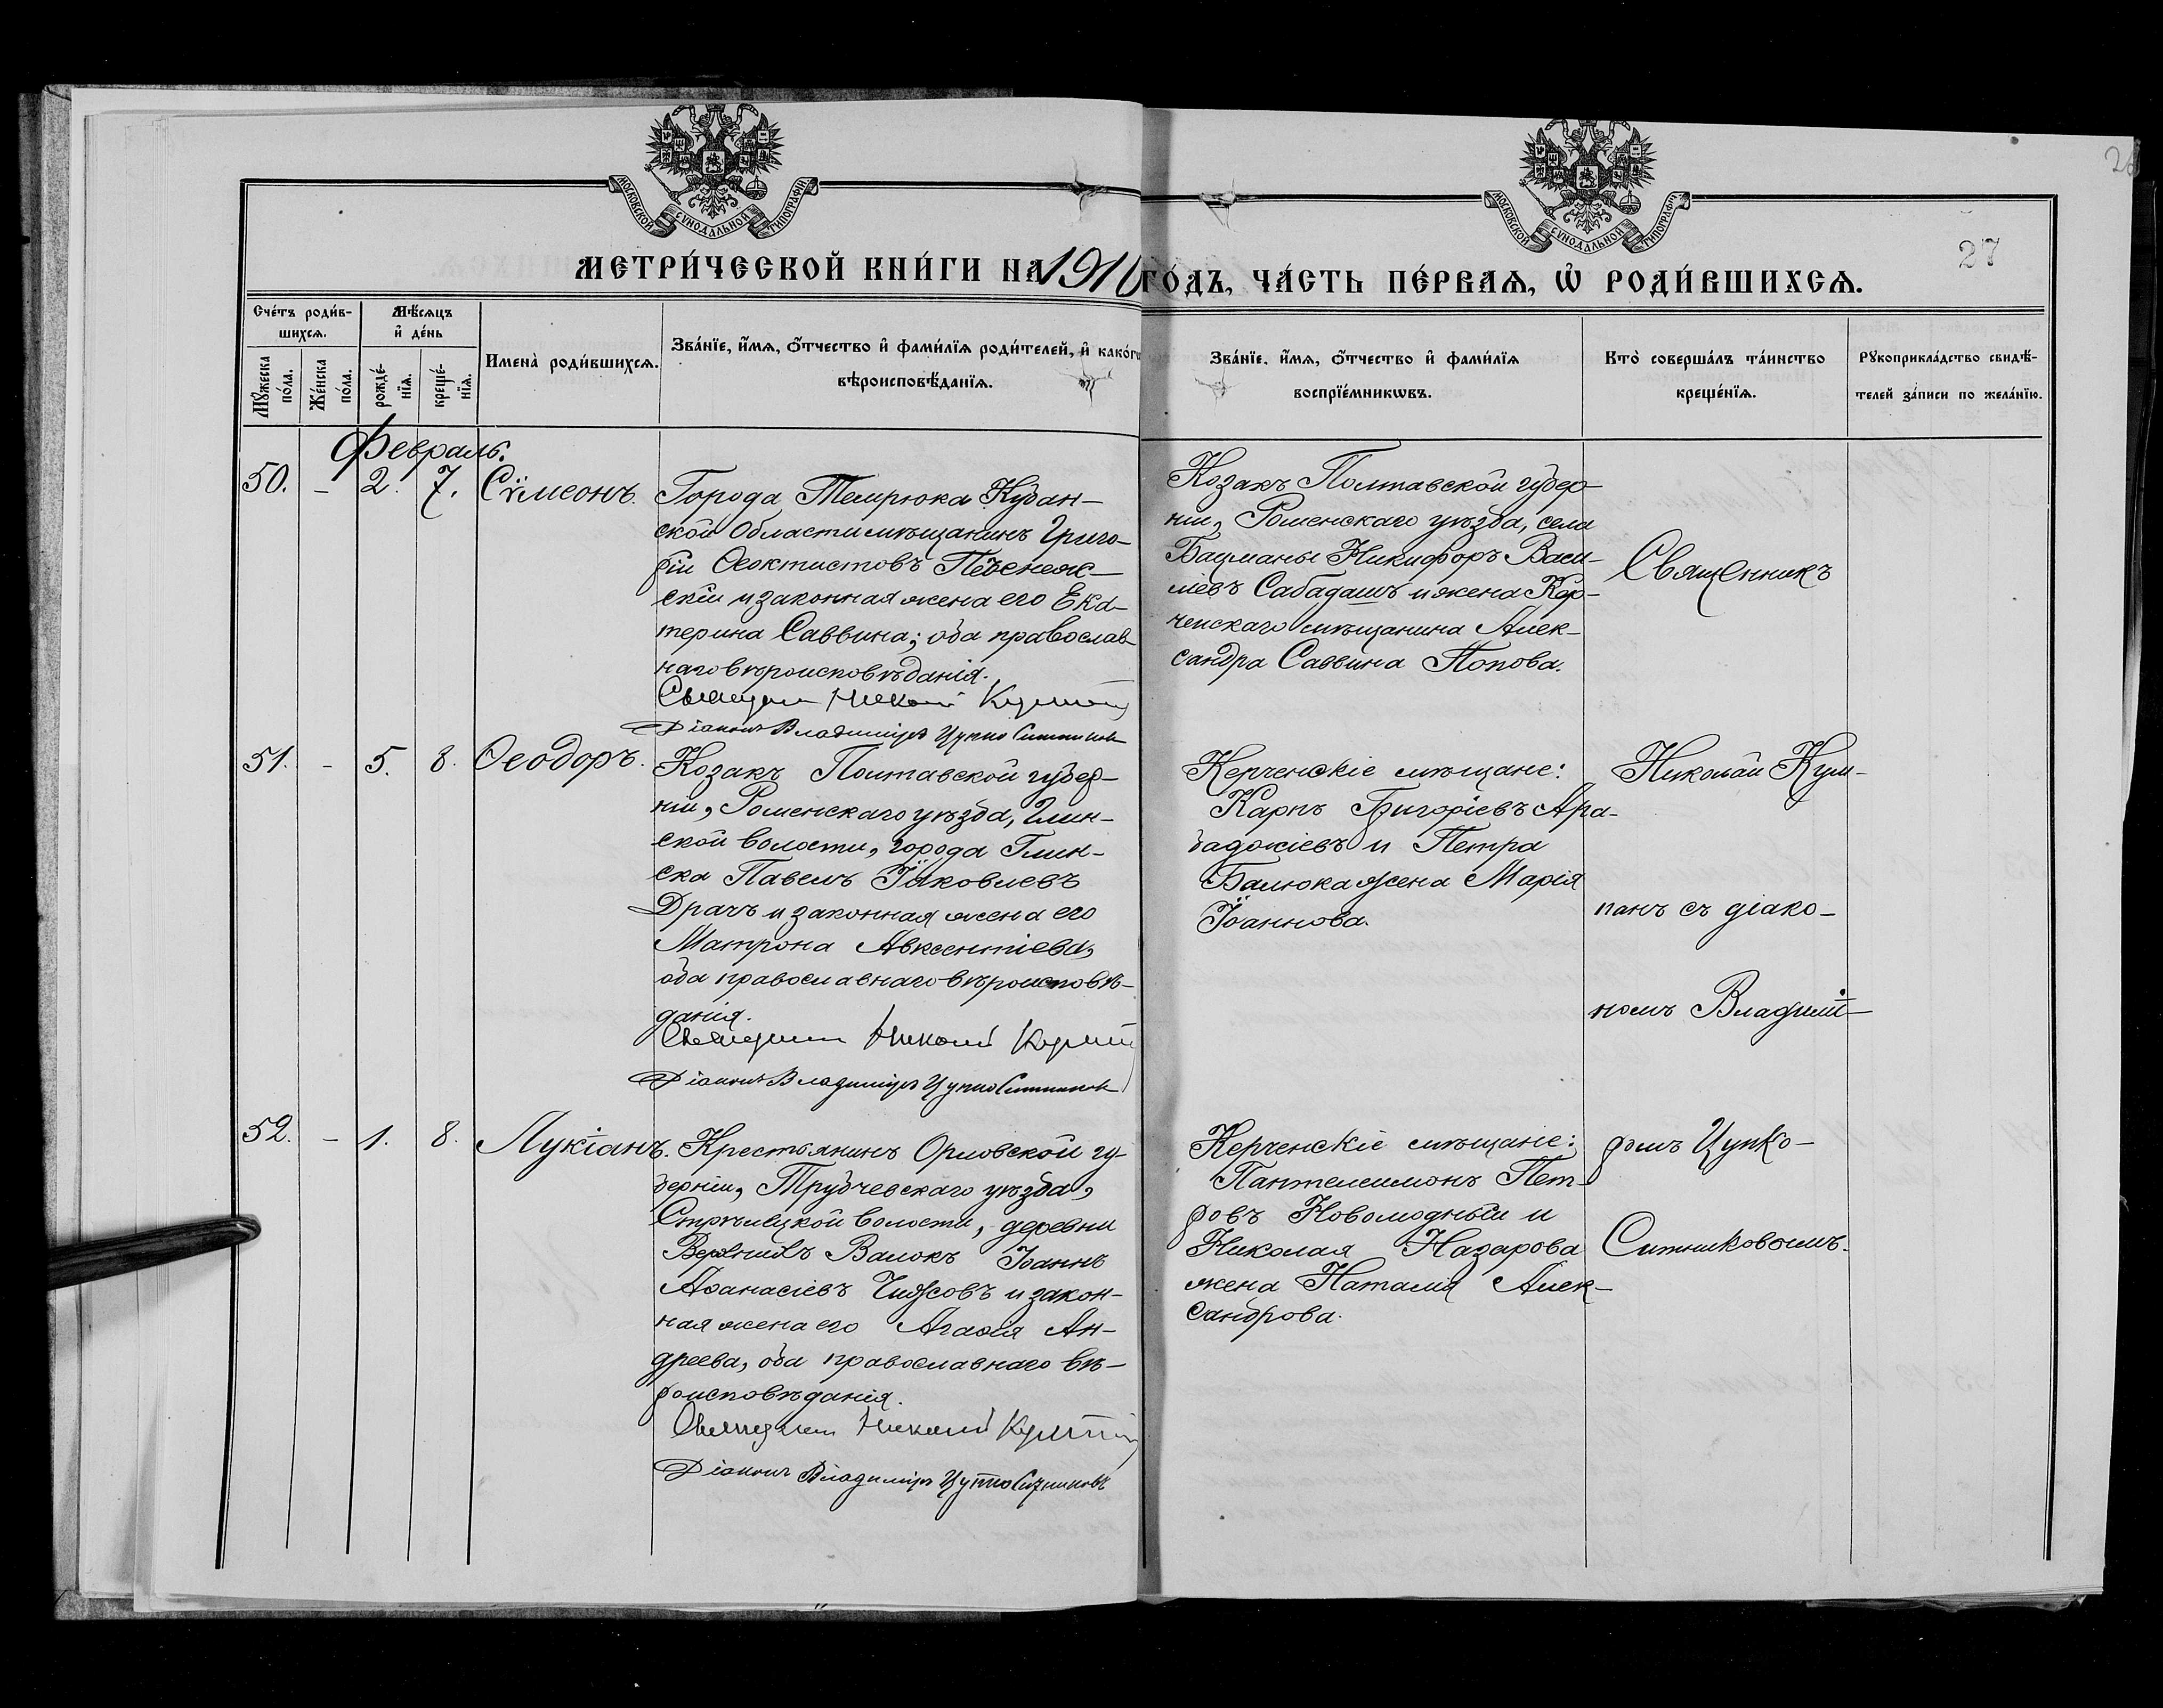 МОСКОВСКОЙ СѴНОДАЛЬНОЙ ТИПОГРАФІИ
МОСКОВСКОЙ СѴНОДАЛЬНОЙ ТИПОГРАФІИ
27
МЕТРИ́ЧЕСКОЙ КНИ́ГИ НА 1910 ГО́ДЪ, ЧА́СТЬ ПЕ́РВАѦ, Ѡ҆ РОДИ́ВШИХСѦ.
Сче́тъ роди́в-
шихсѧ.
Мѣ́сѧцъ
и҆ де́нь
Мꙋ́жеска
по́ла.
Же́нска
по́ла.
рожде́-
нїѧ.
креще́-
нїѧ.
Имена̀ роди́вшихсѧ.
Зва́нїе, и҆́мѧ, ѻ҆́тчество и҆ фами́лїѧ роди́телей, и҆ како́гѡ
вѣроисповѣ́данїѧ.
Зва́нїе, и҆́мѧ, ѻ҆́тчество и҆ фами́лїѧ
воспрїе́мникѡвъ.
Кто̀ соверша́лъ та́инство
креще́нїѧ.
Рꙋкоприкла́дство свидѣ́-
телей за́писи по жела́нїю.
Февраль.
50. – 2. 7. Сѵмеонъ.
Города Темрюка Кубан-
ской Области мѣщанинъ Григо-
рій Ѳеоктистовъ Печенеж-
скій и законная жена его Ека-
терина Саввина; оба православ-
наго вѣроисповѣданія.
Священникъ Николай
Діаконъ Владиміръ Цупко Ситниковъ
Козакъ Полтавской губер-
ніи, Роменскаго уѣзда, села
Бацманы Никифоръ Васи-
ліевъ Сабадашъ и жена Кер-
ченскаго мѣщанина Алек-
сандра Саввина Попова.
Священникъ
51. – 5. 8. Ѳеодоръ.
Козакъ Полтавской губер-
ніи, Роменскаго уѣзда, Глин-
ской волости, города Глин-
ска Павелъ Іаковлевъ
Драчъ и законная жена его
Матрона Авксентіева,
оба православнаго вѣроисповѣ-
данія.
Священникъ Николай
Діаконъ Владиміръ Цупко Ситниковъ
Керченскіе мѣщане:
Карпъ Григоріевъ Ара-
баджіевъ и Петра
Балюка жена Марія
Іоаннова.
Николай Кум-
панъ съ діако-
номъ Владимі-
52. – 1. 8. Лукіанъ.
Крестьянинъ Орловской гу
берніи, Трубчевскаго уѣзда,
Стрѣлецкой волости, деревни
Валокъ Іоаннъ
Аѳанасіевъ и закон-
ная жена его Агаѳія Ан-
дреева, оба православнаго вѣ-
роисповѣданія.
Священникъ Николай
Діаконъ Владиміръ Цупко Ситниковъ
Керченскіе мѣщане:
Пантелеимонъ Пет-
ровъ Новомодный и
Николая Назарова
жена Наталія Алек-
сандрова.
ромъ Цупко-
Ситниковымъ.